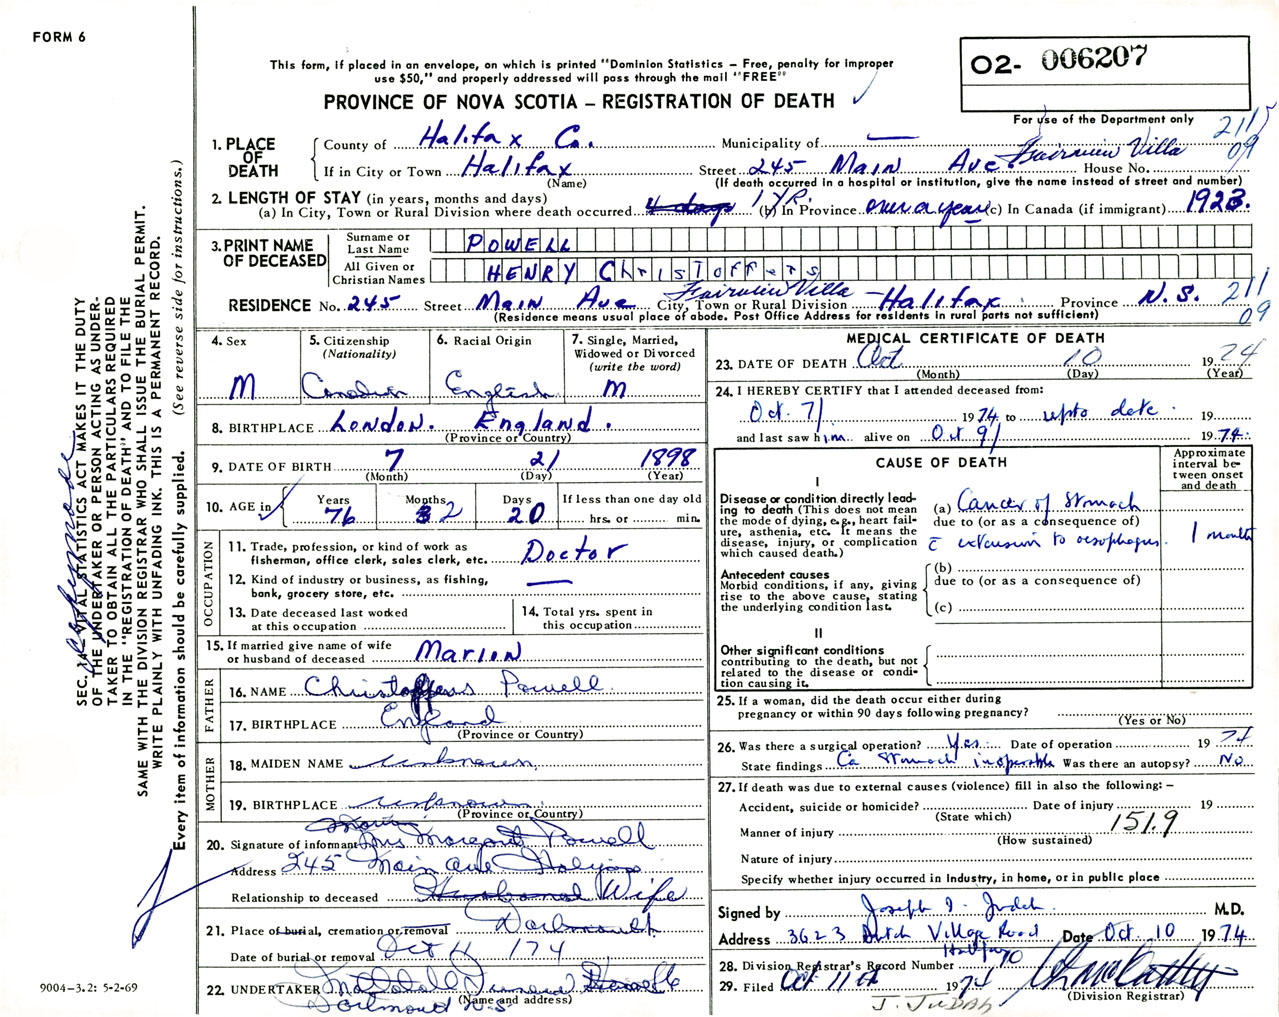 FORM 6
This form, if placed in an envelope, on which is printed "Dominion Statistics – Free, penalty for improper
use $50," and properly addressed will pass through the mail "FREE"
PROVINCE OF NOVA SCOTIA – REGISTRATION OF DEATH
O2- 006207
For use of the Department only
2115
09
1. PLACE OF DEATH
County of Halifax Co. Municipality of —
If in City or Town Halifax Street 245 Main Ave. Fairview Villa House No.
(Name) (If death occurred in a hospital or institution, give the name instead of street and number)
2. LENGTH OF STAY (in years, months and days)
(a) In City, Town or Rural Division where death occurred 4 days 1 YR. (b) In Province over a year (c) In Canada (if immigrant) 1923.
3. PRINT NAME OF DECEASED
Surname or Last Name POWELL
All Given or Christian Names HENRY Christoffers
RESIDENCE No. 245 Street Main Ave City, Town or Rural Division Fairview Villa Halifax Province N.S.
(Residence means usual place of abode. Post Office Address for residents in rural parts not sufficient)
211
09
4. Sex M
5. Citizenship (Nationality) Canadian
6. Racial Origin English
7. Single, Married, Widowed or Divorced (write the word) M
8. BIRTHPLACE London. England.
(Province or Country)
9. DATE OF BIRTH 7 21 1898
(Month) (Day) (Year)
10. AGE in Years 76 Months 3 2 Days 20 If less than one day old hrs. or min.
OCCUPATION
11. Trade, profession, or kind of work as fisherman, office clerk, sales clerk, etc. Doctor
12. Kind of industry or business, as fishing, bank, grocery store, etc. —
13. Date deceased last worked at this occupation
14. Total yrs. spent in this occupation
15. If married give name of wife or husband of deceased Marion
FATHER
16. NAME Christoffers Powell
17. BIRTHPLACE England
(Province or Country)
MOTHER
18. MAIDEN NAME unknown
19. BIRTHPLACE unknown
(Province or Country)
20. Signature of informant Mrs Margaret Powell
Address 245 Main Ave Halifax
Relationship to deceased Husband Wife
21. Place of burial, cremation or removal Dartmouth
Date of burial or removal Oct 11 174
22. UNDERTAKER
(Name and address)
Dartmouth N.S
MEDICAL CERTIFICATE OF DEATH
23. DATE OF DEATH Oct 10 1974
(Month) (Day) (Year)
24. I HEREBY CERTIFY that I attended deceased from:
Oct. 7/ 1974 to up to date. 19
and last saw him alive on Oct 9/ 1974.
CAUSE OF DEATH
Approximate interval between onset and death
I
Disease or condition directly leading to death (This does not mean the mode of dying, e.g., heart failure, asthenia, etc. It means the disease, injury, or complication which caused death.)
(a) Cancer of Stomach
due to (or as a consequence of)
c extension to oesophagus. 1 month
Antecedent causes
Morbid conditions, if any, giving rise to the above cause, stating the underlying condition last.
(b)
due to (or as a consequence of)
(c)
II
Other significant conditions
contributing to the death, but not related to the disease or condition causing it.
25. If a woman, did the death occur either during pregnancy or within 90 days following pregnancy?
(Yes or No)
26. Was there a surgical operation? Yes. Date of operation 1974
State findings Ca Stomach inoperable Was there an autopsy? No
27. If death was due to external causes (violence) fill in also the following: –
Accident, suicide or homicide? Date of injury 19
(State which)
151.9
Manner of injury
(How sustained)
Nature of injury
Specify whether injury occurred in Industry, in home, or in public place
Signed by Joseph I. Judah M.D.
Address 3623 Dutch Village Road Halifax Date Oct. 10 1974
28. Division Registrar's Record Number
29. Filed Oct 11th 1974
(Division Registrar)
J. JUDAH
SEC. 14 VITAL STATISTICS ACT MAKES IT THE DUTY
OF THE UNDERTAKER OR PERSON ACTING AS UNDER-
TAKER TO OBTAIN ALL THE PARTICULARS REQUIRED
IN THE "REGISTRATION OF DEATH" AND TO FILE THE
SAME WITH THE DIVISION REGISTRAR WHO SHALL ISSUE THE BURIAL PERMIT.
WRITE PLAINLY WITH UNFADING INK. THIS IS A PERMANENT RECORD.
Every item of information should be carefully supplied. (See reverse side for instructions.)
9004–3.2: 5-2-69